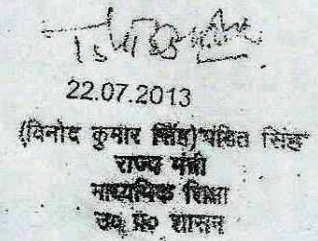 22.07.2013
(विनोद कुमार सिंह) पंडित सिंह
राज्य मंत्री
माध्यमिक शिक्षा
उ० प्र० शासन